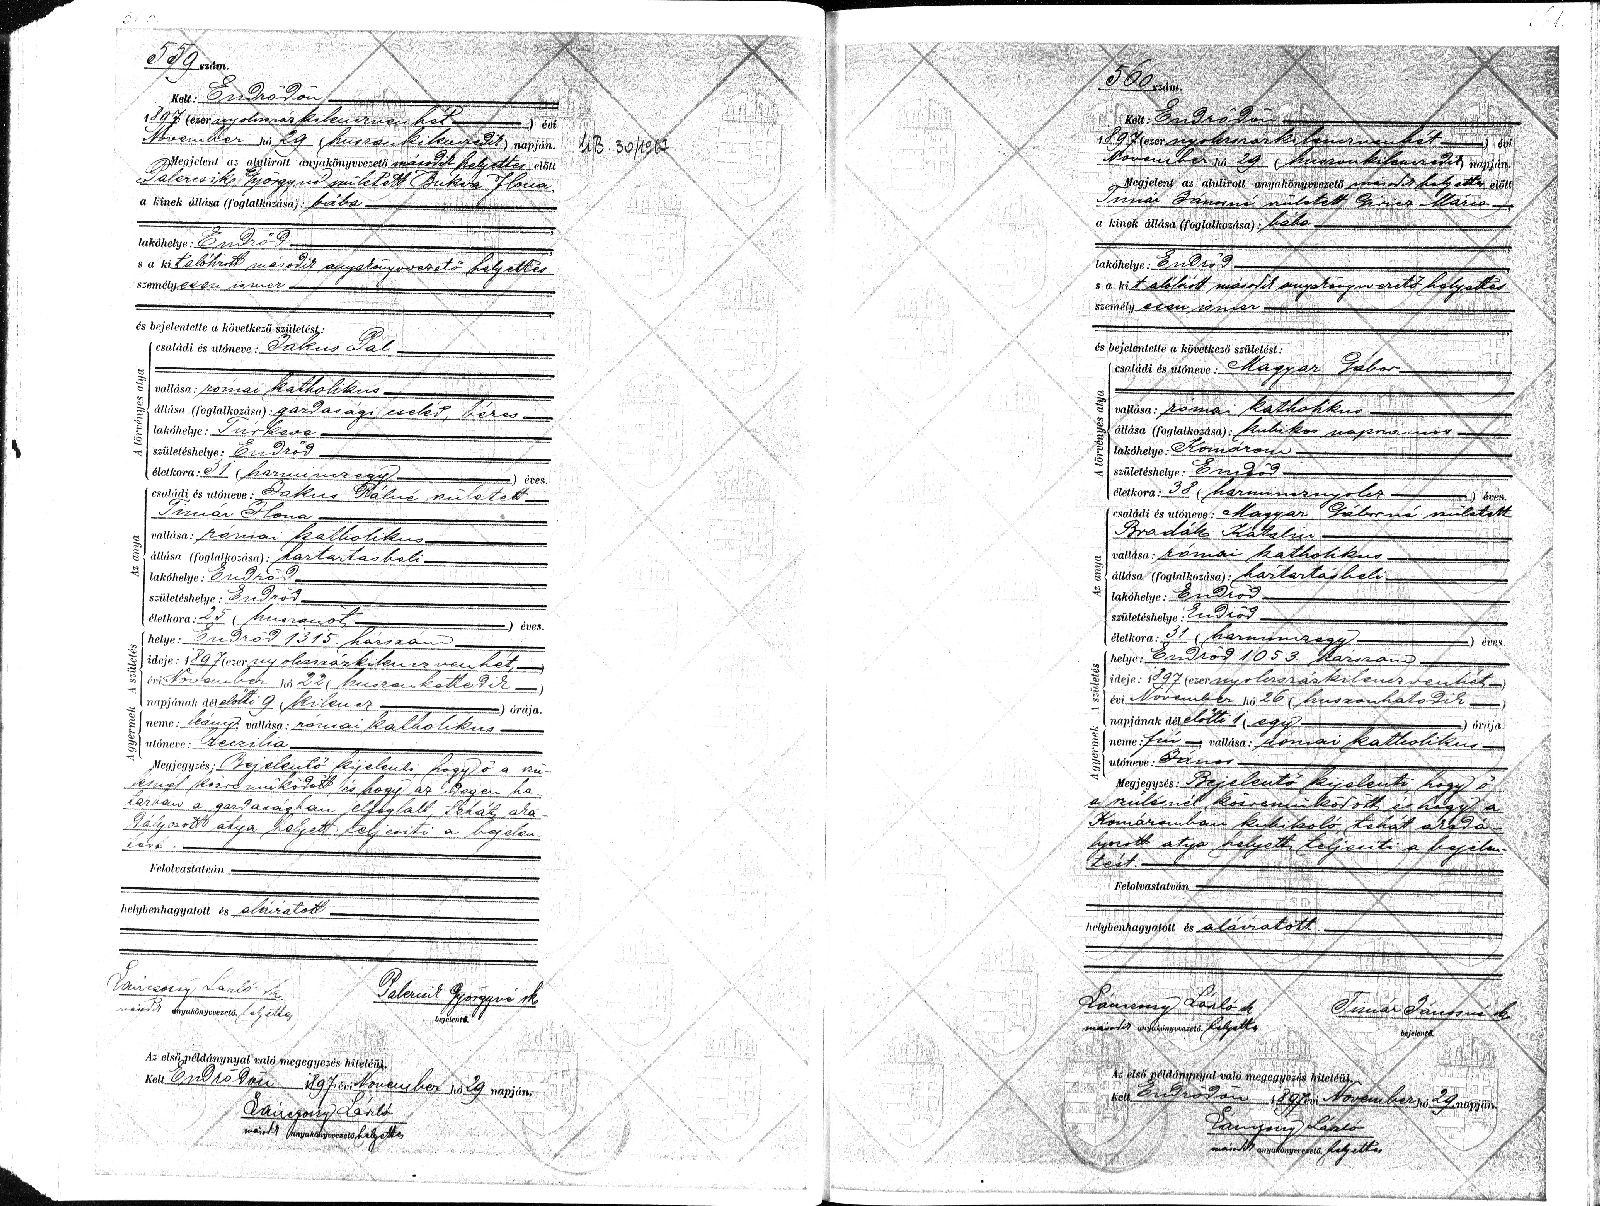 559 szám.
Kelt: Endrődön
1897 (ezer nyolcszázkilenczvenhét) évi
November hó 29 (huszonkilenczedik) napján.
Megjelent az alulirott anyakönyvvezető második helyettes előtt
Györgyné született Ilona
a kinek állása (foglalkozása): bába
lakóhelye: Endrőd
s a kit alólirott második anyakönyvvezető helyettes
személyesen ismer
és bejelentette a következő születést:
A törvényes atya
családi és utóneve: Jakus Pál
vallása: római katholikus
állása (foglalkozása): gazdasági cseléd, béres
lakóhelye: Túrkeve
születéshelye: Endrőd
életkora: 31 (harminczegy) éves.
Az anya
családi és utóneve: Jakus Pálné született
Timár Ilona
vallása: római katholikus
állása (foglalkozása): háztartásbeli
lakóhelye: Endrőd
születéshelye: Endrőd
életkora: 25 (huszonöt) éves.
A születés
helye: Endrőd 1315 házszám
ideje: 1897 (ezer nyolcszázkilenczvenhét)
évi November hó 22 (huszonkettedik)
napjának délelőtti 9 (kilencz) órája.
A gyermek
neme: leány vallása: római katholikus
utóneve: Czeczilia
Megjegyzés: Bejelentő kijelenti, hogy ő a szü-
lésnél közreműködött és hogy az
a gazdaságban elfoglalt tehát aka-
dályozott atya helyett teljesiti a bejelen-
tést.
Felolvastatván
helybenhagyatott és aláiratott
László sk
második anyakönyvvezető helyettes
Györgyné sk
bejelentő.
Az első példánynyal való megegyezés hiteléül.
Kelt Endrődön 1897 évi November hó 29 napján.
László
második anyakönyvvezető helyettes
30/1967
560 szám.
Kelt: Endrődön
1897 (ezer nyolcszázkilenczvenhét) évi
November hó 29 (huszonkilenczedik) napján.
Megjelent az alulirott anyakönyvvezető második helyettes előtt
Timár Jánosné született Mária
a kinek állása (foglalkozása): bába
lakóhelye: Endrőd
s a kit alólirott második anyakönyvvezető helyettes
személyesen ismer
és bejelentette a következő születést:
A törvényes atya
családi és utóneve: Magyar Gábor
vallása: római katholikus
állása (foglalkozása): kubikos napszámos
lakóhelye: Komárom
születéshelye: Endrőd
életkora: 38 (harmincznyolcz) éves.
Az anya
családi és utóneve: Magyar Gáborné született
Bradák Katalin
vallása: római katholikus
állása (foglalkozása): háztartásbeli
lakóhelye: Endrőd
születéshelye: Endrőd
életkora: 31 (harminczegy) éves
A születés
helye: Endrőd 1053 házszám
ideje: 1897 (ezer nyolcszázkilenczvenhét)
évi November hó 26 (huszonhatodik)
napjának délelőtti 1 (egy) órája.
A gyermek
neme: fiú vallása: római katholikus
utóneve: János
Megjegyzés: Bejelentő kijelenti, hogy ő
a szülésnél közreműködött és hogy a
Komáromban kubikoló, tehát akadá-
lyozott atya helyett teljesiti a bejelen-
tést.
Felolvastatván
helybenhagyatott és aláiratott
László sk
második anyakönyvvezető helyettes
Timár Jánosné sk
bejelentő.
Az első példánynyal való megegyezés hiteléül.
Kelt Endrődön 1897 évi November hó 29 napján.
László
második anyakönyvvezető helyettes